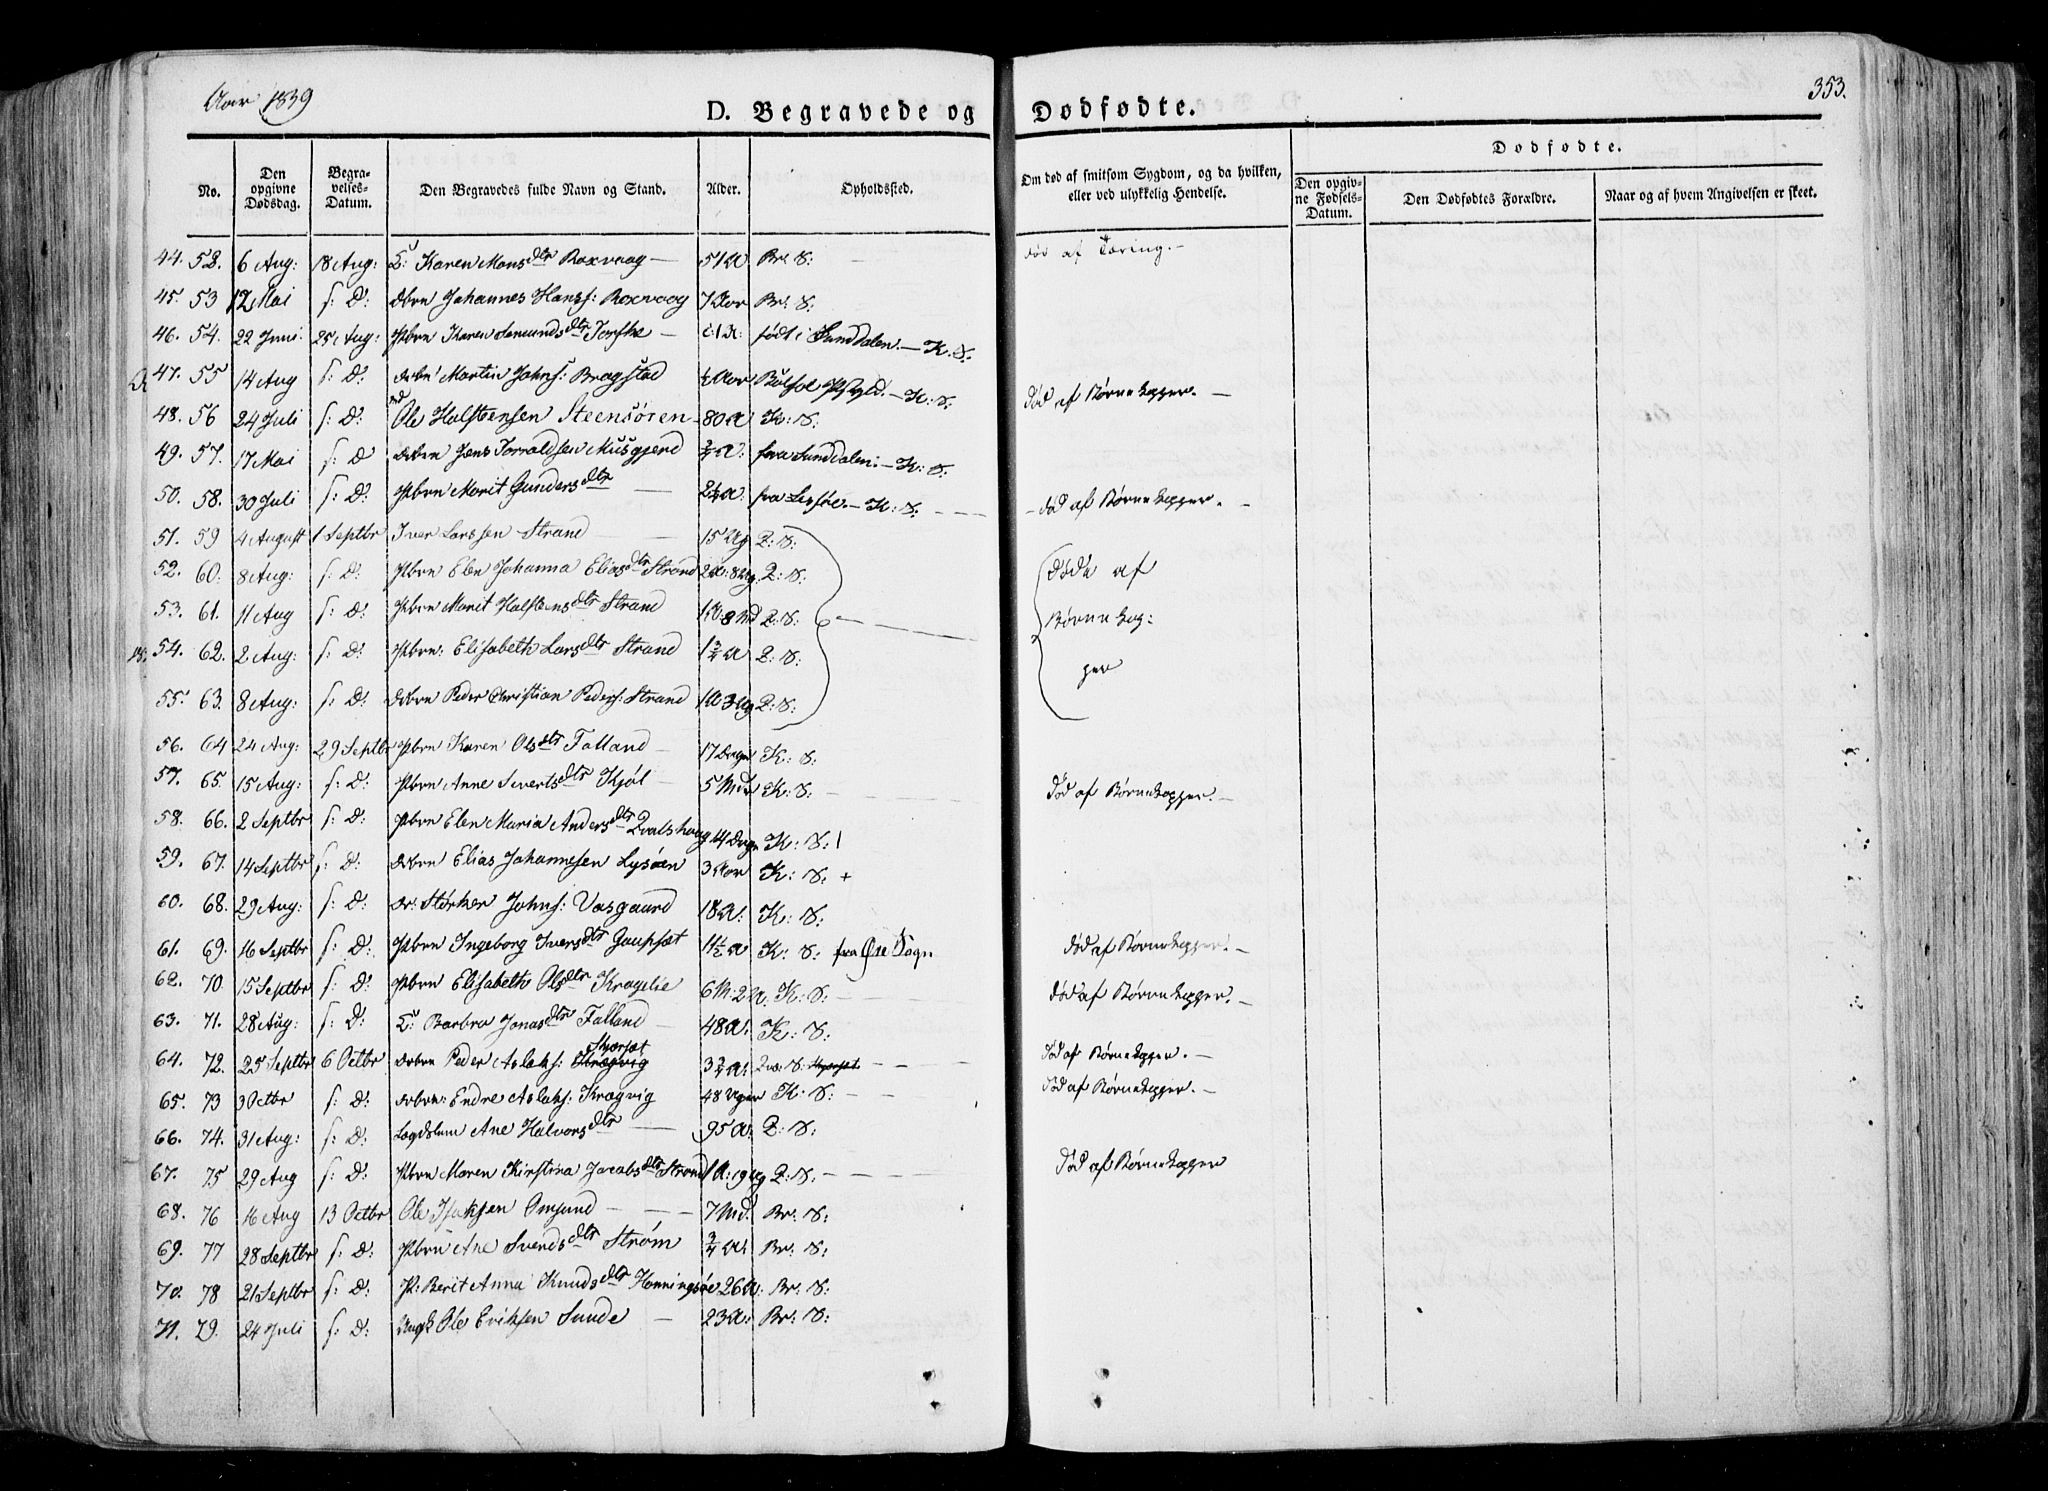 Aar 1839
D. Begravede og Dødfødte.
353.
Dødfødte.
No.
Den opgivne Dødsdag.
Begravelses-Datum.
Den Begravedes fulde Navn og Stand.
Alder.
Opholdssted.
Om død af smitsom Sygdom, og da hvilken, eller ved ulykkelig Hendelse.
Den opgivne Fødsels-Datum.
Den Dødfødtes Forældre.
Naar og af hvem Angivelsen er skeet.
44. 52. 6 Aug: 18 Aug: Karen Mons dtr Roxvaag — 51 A Br: S: død af Tæring. —
45. 53 12 Mai s: D: Dbrn Johannes Hans: Roxvaag 7 Aar Br: S:
46. 54. 22 Juni 25 Aug: Pbrn Karen Semunds dtr Torske — født i Sunddalen. — K: S:
47. 55 14 Aug s: D: Dbrn Martin Johns: Bragstad ½ Aar Bolsøe — K: S: død af Børnekopper. —
48. 56 24 Juli s: D: Ole Halstensen Steensøren 80 A K: S:
49. 57. 17 Mai s: D Dbrn Jens Torvaldsen Musgjerd fra Sunddalen: — K: S:
50. 58. 30 Juli s: D: Pbrn Marit Gunders dtr — 2½ A fra Lessøe. — K: S: død af Børnekopper. —
51. 59 4 August 1 Septbr Iver Larssen Strand 15 Ug Q: S:
52. 60. 8 Aug: s: D: Pbrn Elen Johanna Elias dtr Strand 2 A: 8 Ug. Q: S: døde af
53. 61. 11 Aug s: D: Pbrn Marit Halstens dtr Strand 8 Md Q: S: Børnekop:
54. 62. 2 Aug: s: D: Pbrn: Elisabeth Lars dtr Strand 1¾ A Q: S: per
55. 63. 8 Aug: s: D: Dbrn Peder Christian Peders: Strand 1 A 3 Ug Q: S:
56. 64 24 Aug: 29 Septbr Pbrn Karen Ols dtr Falland — 17 Dage K: S:
57. 65. 15 Aug: s: D: Pbrn Anne Siverts dtr Kjøl — 5 Mdr K: S: — død af Børnekopper. —
58. 66. 2 Septbr s: D: Pbrn Elen Maria Anders dtr Qvalshaug 14 Dage K: S:
59. 67. 14 Septbr s: D: Dbrn Elias Johannesen Lysøen 3 Aar K: S: +
60. 68. 29 Aug: s: D: Dr: Størker Johns: Vasgaard 18 A: K: S:
61. 69. 16 Septbr s: D: Pbrn Ingeborg Ivers dtr Gaupset 1½ A K: S: fra Øre Sogn død af Børnekopper. —
62. 70. 15 Septbr s: D: Pbrn Elisabeth Ols dtr Kragelie 6 M: 2 A. K: S: — død af Børnekopper. —
63. 71. 28 Aug: s: D: Barbro Jonas dtr Falland — 48 A: K: S:
64. 72. 25 Septbr 6 Octbr Dbrn Peder Aslaks: Skorset 3¾ A: død af Børnekopper. —
65. 73 3 Octbr s: D: Dbrn: Endre Aslaks: Kragvig 48 Uger K: S: — død af Børnekopper. —
66. 74. 31 Aug: s: D: Lægdslem Ane Halvors dtr — 95 A: Q: S:
67. 75 29 Aug s: D: Pbrn Maren Kirstina Jacobs dtr Strand 1 A: 19 Ug Q: S: — død af Børnekopper
68. 76 16 Aug 13 Octbr Ole Isaksen Omsund — 7 Md. Br: S:
69. 77 28 Septbr s: D: Pbrn Ane Svends dtr Strøm ¾ A: Br: S:
70. 78 21 Septbr s: D: P: Berit Anna Knuds dtr Henningsøe 26 A: Br: S:
71. 79. 24 Juli s: D: Ungk Ole Eriksen Sunde — 23 A: Br: S: